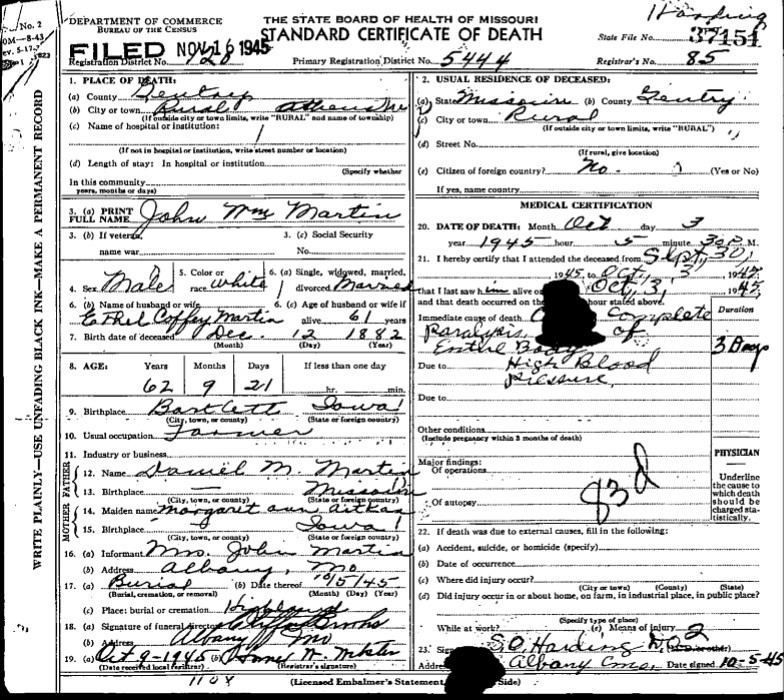 No. 2
OM-8-43
ev. 5-17-
Harding
DEPARTMENT OF COMMERCE
BUREAU OF THE CENSUS
THE STATE BOARD OF HEALTH OF MISSOURI
STANDARD CERTIFICATE OF DEATH
State File No. 37154
FILED NOV 16 1945
Registration District No. Primary Registration District No. 5444 Registrar's No. 85
WRITE PLAINLY—USE UNFADING BLACK INK—MAKE A PERMANENT RECORD
1. PLACE OF DEATH:
(a) County Gentry
(b) City or town Rural
(If outside city or town limits, write "RURAL" and name of township)
(c) Name of hospital or institution:
(If not in hospital or institution, write street number or location)
(d) Length of stay: In hospital or institution
(Specify whether
In this community
years, months or days)
3. (a) PRINT FULL NAME John Wm Martin
3. (b) If veteran, name war 3. (c) Social Security No.
4. Sex Male 5. Color or race white 6. (a) Single, widowed, married, divorced Married
6. (b) Name of husband or wife Ethel Coffey Martin 6. (c) Age of husband or wife if alive 61 years
7. Birth date of deceased Dec. 12 1882
(Month) (Day) (Year)
8. AGE: Years Months Days If less than one day
62 9 21 hr. min.
9. Birthplace Bartlett Iowa
(City, town, or county) (State or foreign country)
10. Usual occupation Farmer
11. Industry or business
FATHER
12. Name Daniel M. Martin
13. Birthplace — Missouri
(City, town, or county) (State or foreign country)
MOTHER
14. Maiden name Margaret Ann
15. Birthplace Iowa
(City, town, or county) (State or foreign country)
16. (a) Informant Mrs. John Martin
(b) Address Albany, Mo
17. (a) Burial (b) Date thereof 10/5/45
(Burial, cremation, or removal) (Month) (Day) (Year)
(c) Place: burial or cremation Highland
18. (a) Signature of funeral director Clifford Brooks
(b) Address Albany Mo
19. (a) Oct 9-1945 (b)
(Date received local registrar) (Registrar's signature)
2. USUAL RESIDENCE OF DECEASED:
(a) State Missouri (b) County Gentry
(c) City or town Rural
(If outside city or town limits, write "RURAL")
(d) Street No.
(If rural, give location)
(e) Citizen of foreign country? No. (Yes or No)
If yes, name country
MEDICAL CERTIFICATION
20. DATE OF DEATH: Month Oct day 3
year 1945 hour 5 minute 30 P. M.
21. I hereby certify that I attended the deceased from Sept, 30,
1945, to Oct, 3, 1945,
that I last saw him alive on Oct, 3, 1945,
and that death occurred on the hour stated above.
Duration
Immediate cause of death Complete
Paralysis of
Entire Body 3 Days
Due to High Blood
Pressure,
Due to
Other conditions
(Include pregnancy within 3 months of death)
Major findings:
Of operations
Of autopsy
83d
PHYSICIAN
Underline the cause to which death should be charged statistically.
22. If death was due to external causes, fill in the following:
(a) Accident, suicide, or homicide (specify)
(b) Date of occurrence
(c) Where did injury occur?
(City or town) (County) (State)
(d) Did injury occur in or about home, on farm, in industrial place, in public place?
(Specify type of place)
While at work? (e) Means of injury 2
23. S.O. Harding D.O.
Address Albany Mo. Date signed 10-5-45
(Licensed Embalmer's Statement Side)